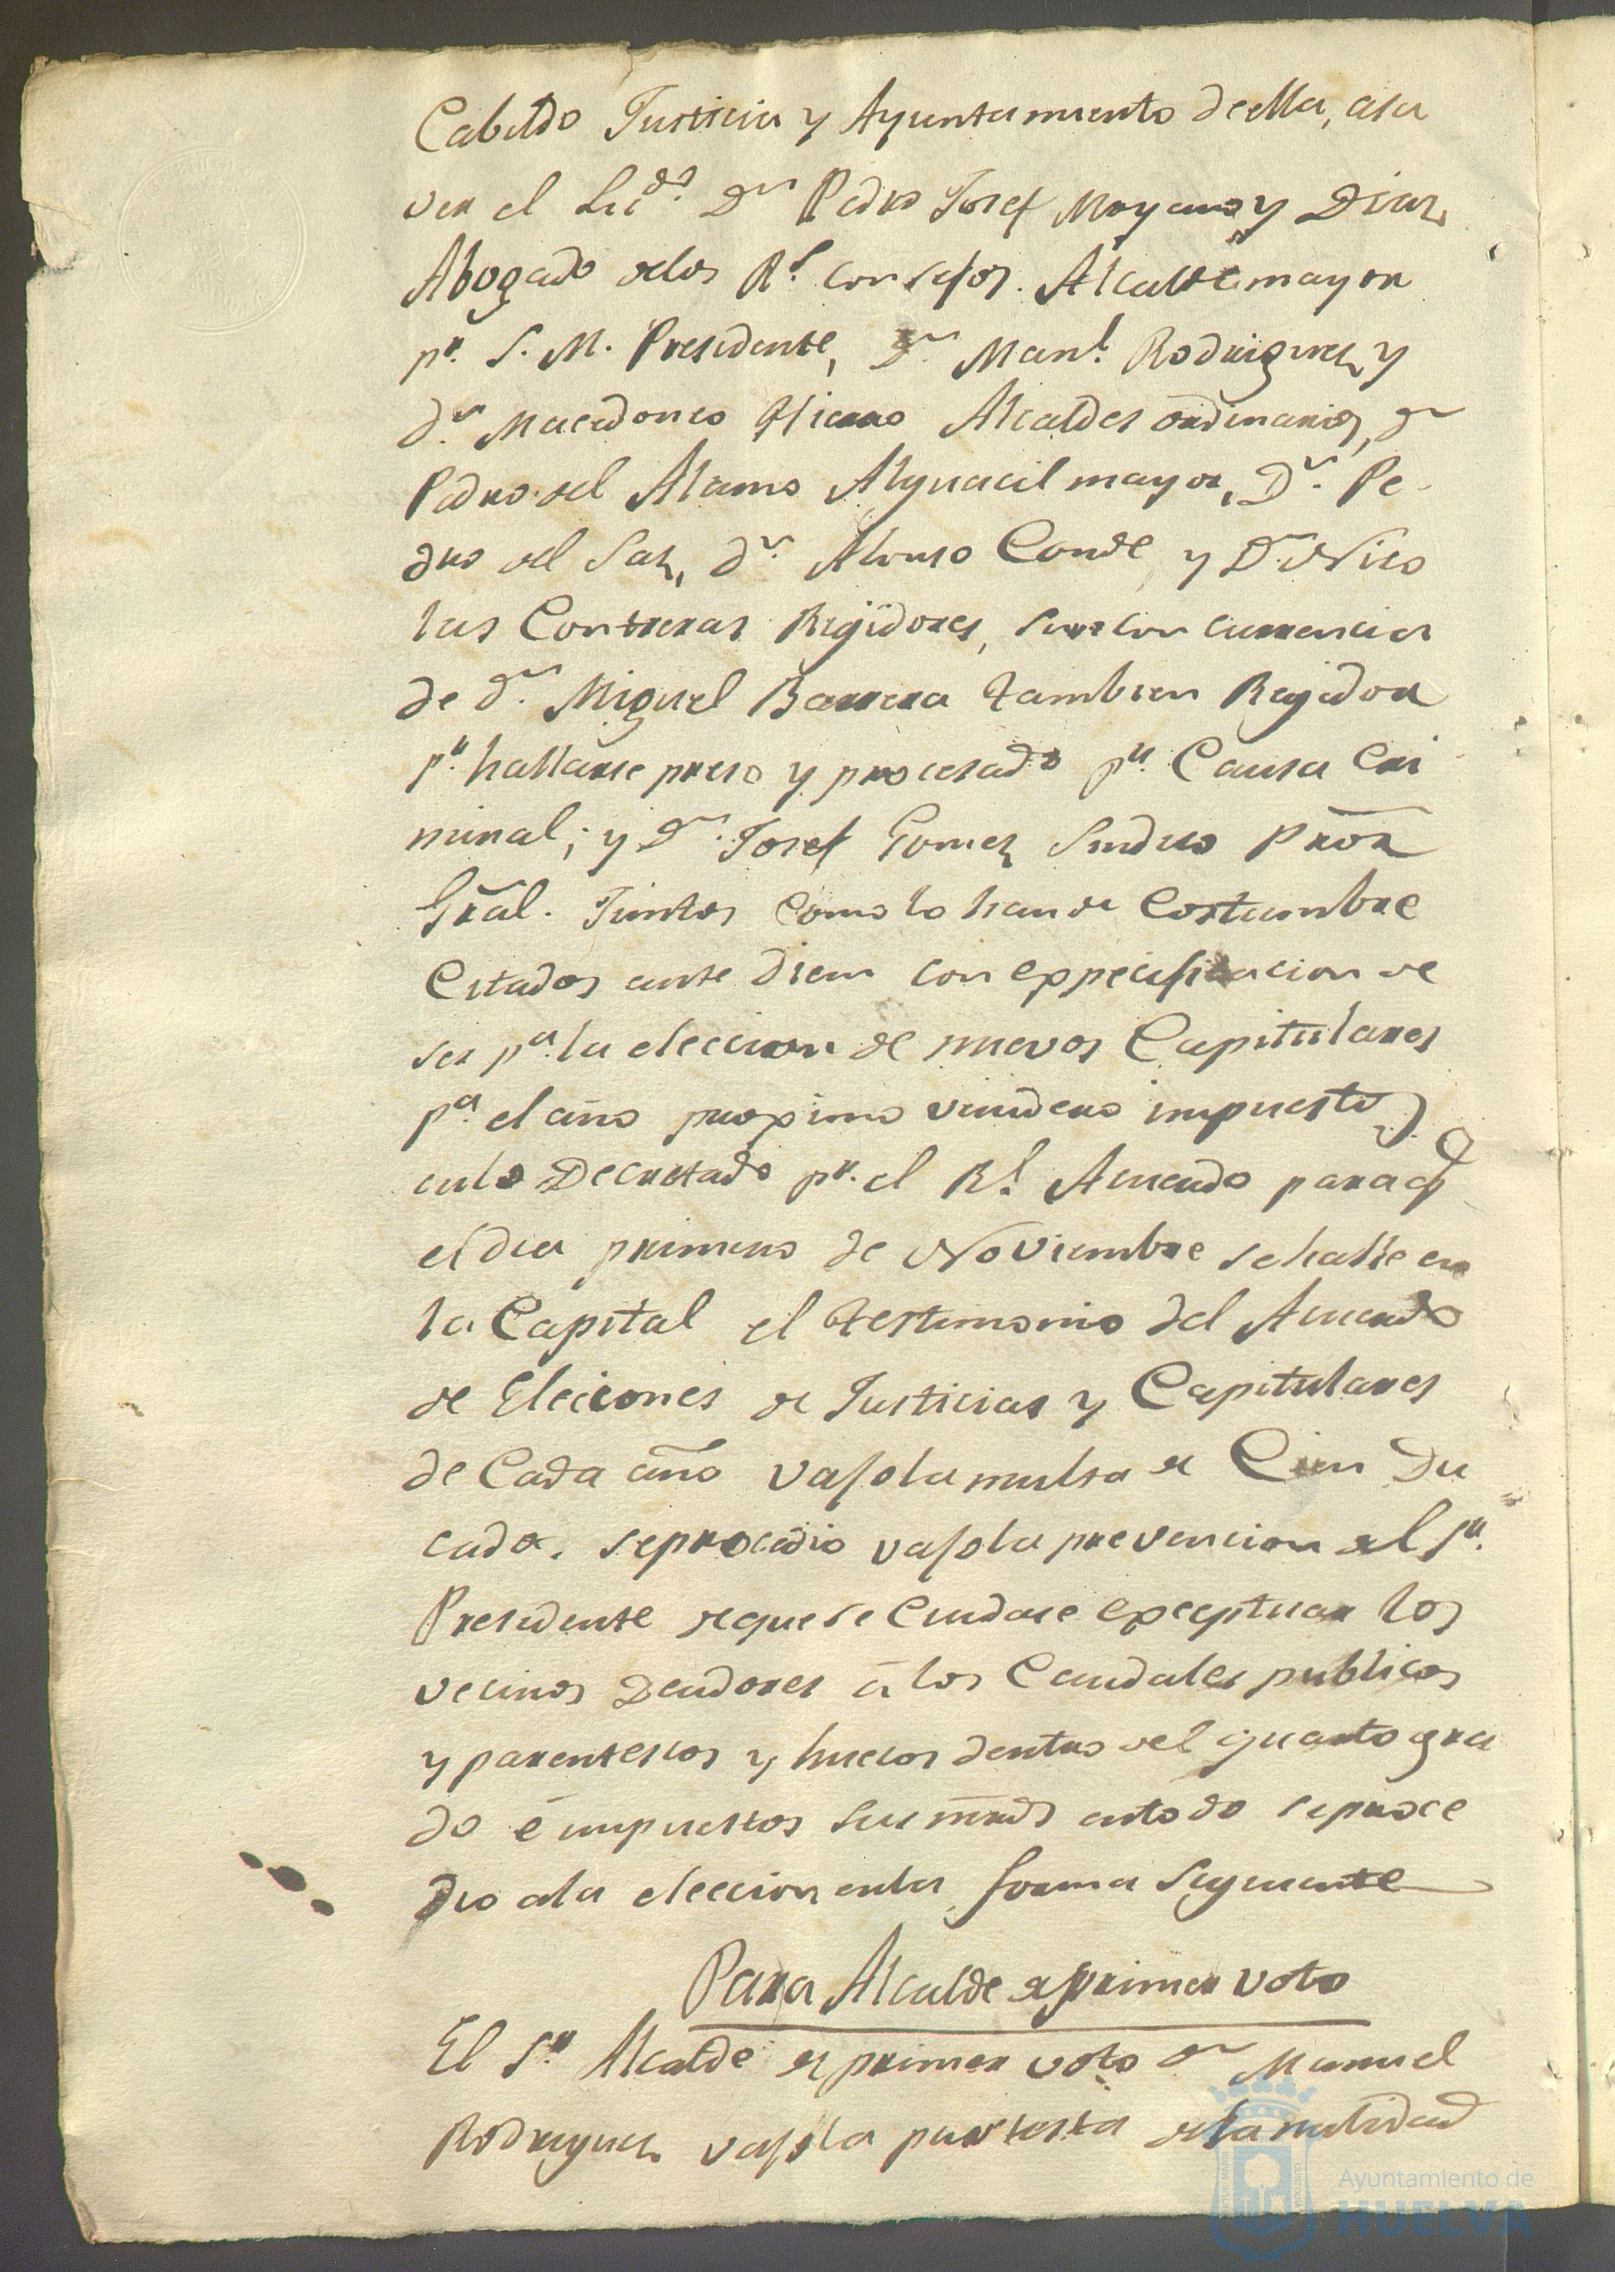 Cabildo Justicia y Ayuntamiento deella, asa
ver el Licdo. Dn Pedro Josef Moyano y Diaz
Abogado delos Rs. consejos. Alcalde mayor
pr. S. M. Presidente, Dn. Manl. Rodriguez y
dn. Macedonio Hierro Alcaldes ordinarios, dn
Pedro del Alamo Alguacil mayor, Dn. Pe
dro del Saz, dn. Alonso Conde, y Dn. Nico
las Contreras Regidores, sin concurrencia
de dn. Miguel Barrera tambien Regidor
pr. hallarse preso y procesado pr. Causa Cri
minal; y Dn. Josef Gomez Sindico Pror
Gral. Juntos como lo han de costumbre
Citados ante diem con expecificacion de
ser pa. la eleccion de nuevos Capitulares
pa. el año proximo venidero impuestos
enlo Decretado pr. el Rl. Acuerdo paraq
el dia primero de Noviembre se halle en
la Capital el testimonio del Acuerdo
de Elecciones de Justicias y Capitulares
de Cada año vajo la multa de Cien Du
cados. se procedio vajo la prevencion del sr.
Presidente de que se Cuidase exceptuar los
vecinos Deudores á los Caudales publicos
y parentescos y huecos dentro del quarto gra
do é impuestos sus mrds en todo se proce
dio ala eleccion enla forma siguiente
Para Alcalde de primer voto
El Sr Alcalde de primer voto dn Manuel
Rodriguez vajo la protesta dela nulidad
Ayuntamiento de
HUELVA